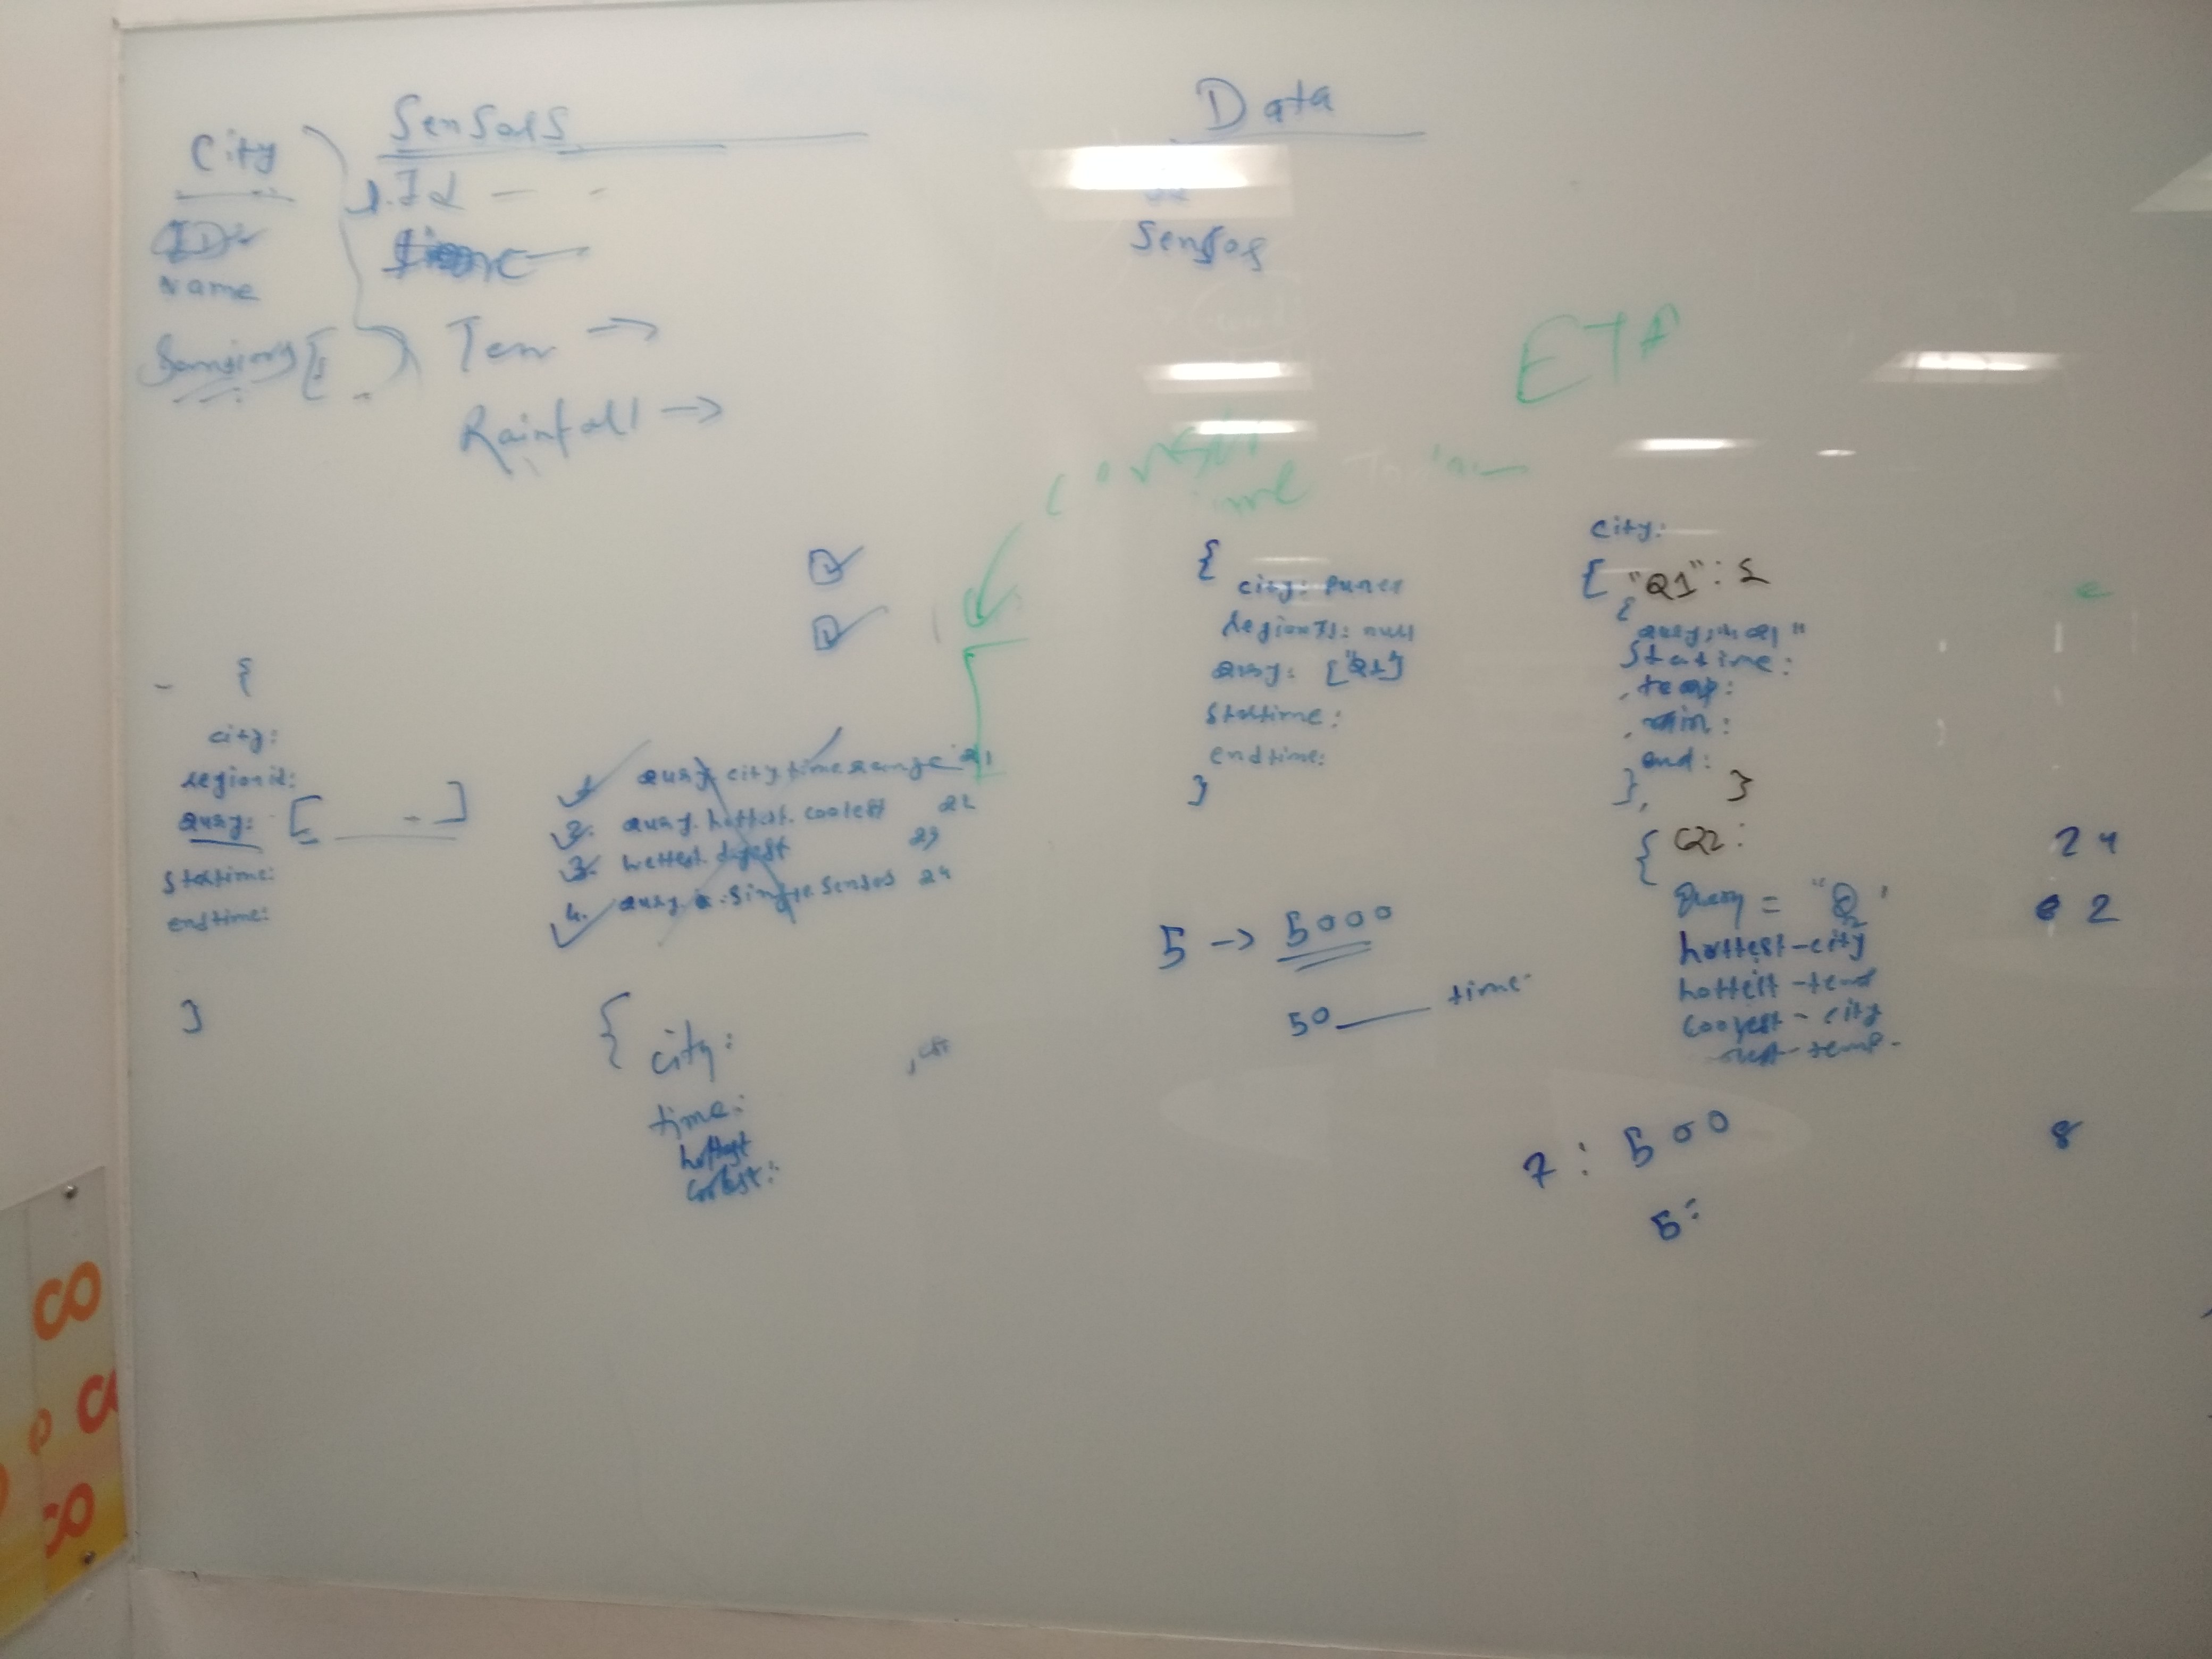 City
ID
Name
Sensors [
Sensors
1. Id
time
Tem →
Rainfall →
Data
Sensor
ETA
{
city:
regionid:
query: [ ]
startime:
endtime:
}
1. query city time range Q1
2. query hottest coolest Q2
3. wettest dryest Q3
4. query a single sensor Q4
{
city:
time:
hottest
coolest:
{
city: Pune
regionId: null
query: ["Q1"]
startime:
endtime:
}
5 → 5000
50 time
city:
[ "Q1": {
{
query: "Q1"
startime:
, temp:
, rain:
end:
}, }
{ Q2:
Query = "Q2
hottest-city
hottest-temp
coolest-city
temp-
24
2
7: 500
5:
8